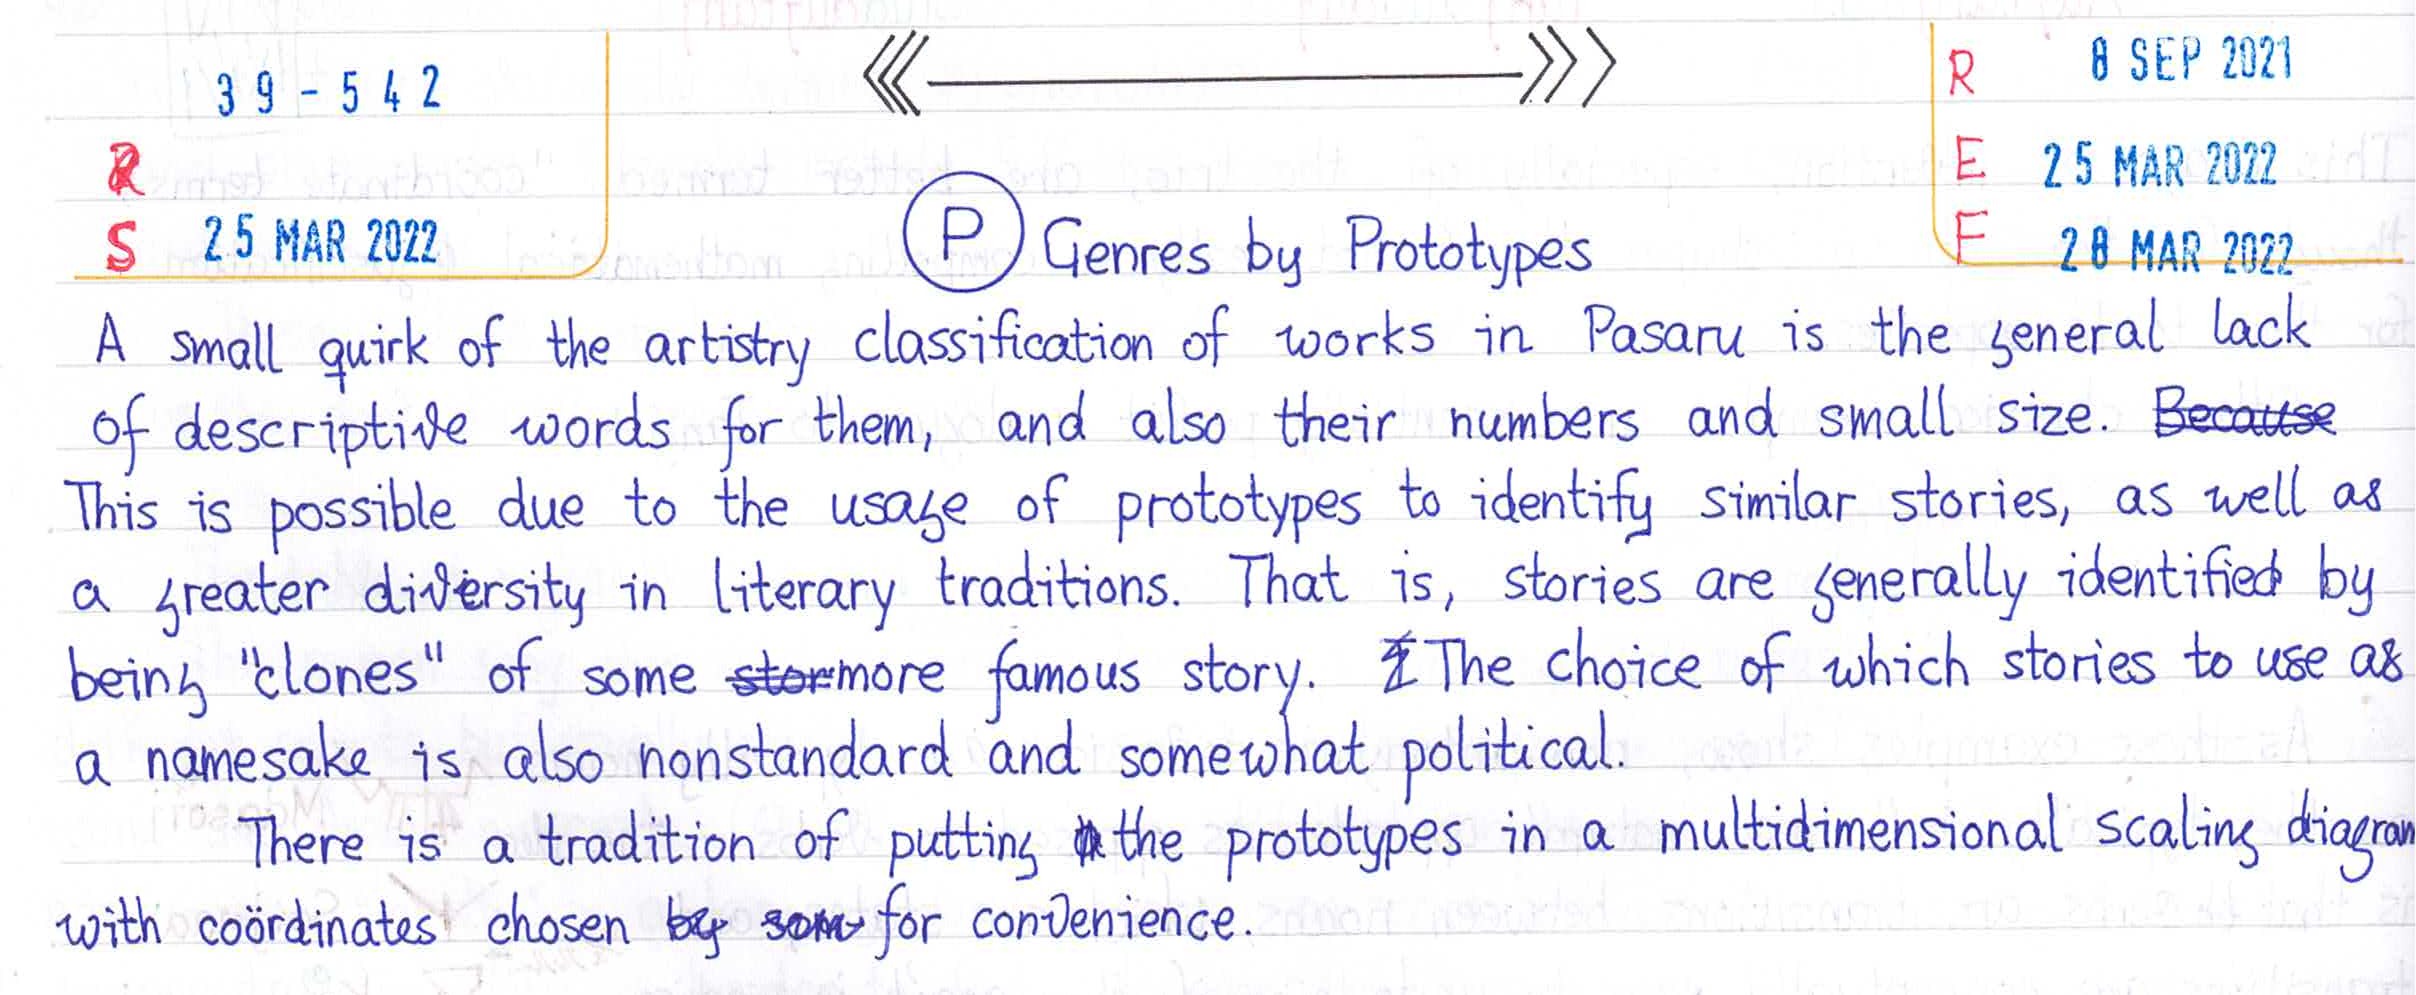 39-542
R
S 25 MAR 2022
R 8 SEP 2021
E 25 MAR 2022
F 28 MAR 2022
P Genres by Prototypes
A small quirk of the artistry classification of works in Pasaru is the general lack
of descriptive words for them, and also their numbers and small size. Because
This is possible due to the usage of prototypes to identify similar stories, as well as
a greater diversity in literary traditions. That is, stories are generally identified by
being "clones" of some stor more famous story. The choice of which stories to use as
a namesake is also nonstandard and somewhat political.
There is a tradition of putting the prototypes in a multidimensional scaling diagram
with coördinates chosen by som for convenience.